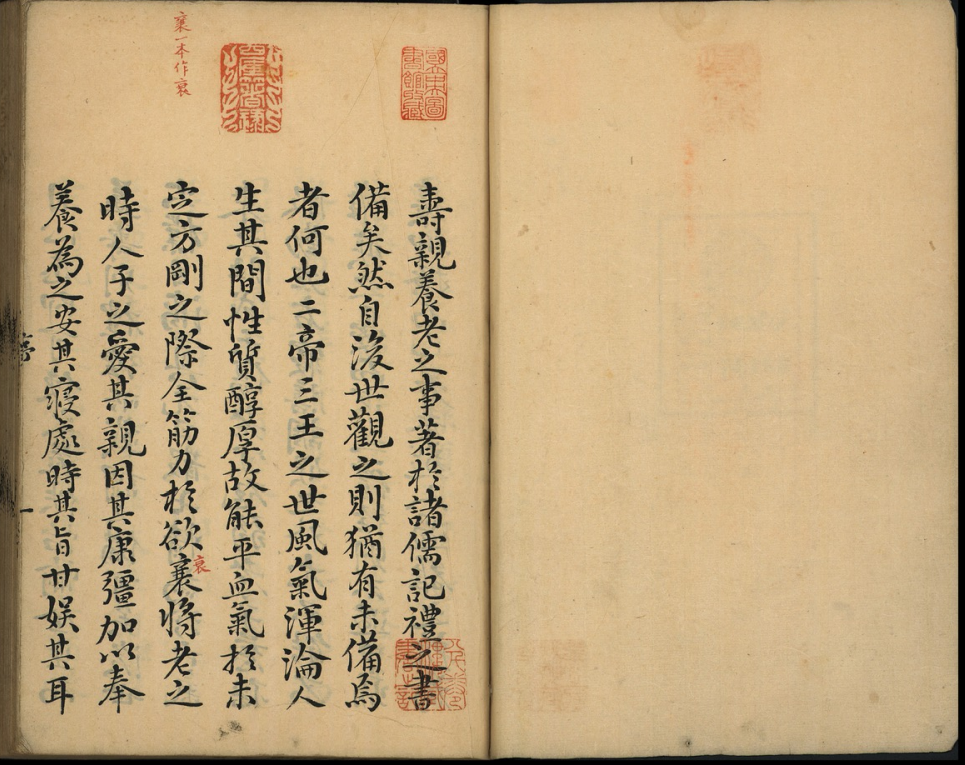 壽親養老之事著於諸儒記禮之書
備矣然自後世觀之則猶有未備焉
者何也二帝三王之世風氣渾淪人
生其間性質醇厚故能平血氣於未
定方剛之際全筋力於欲襄將老之
衰
時人子之愛其親因其康彊加以奉
養為之安其寢處時其旨甘娛其耳
襄一本作衰